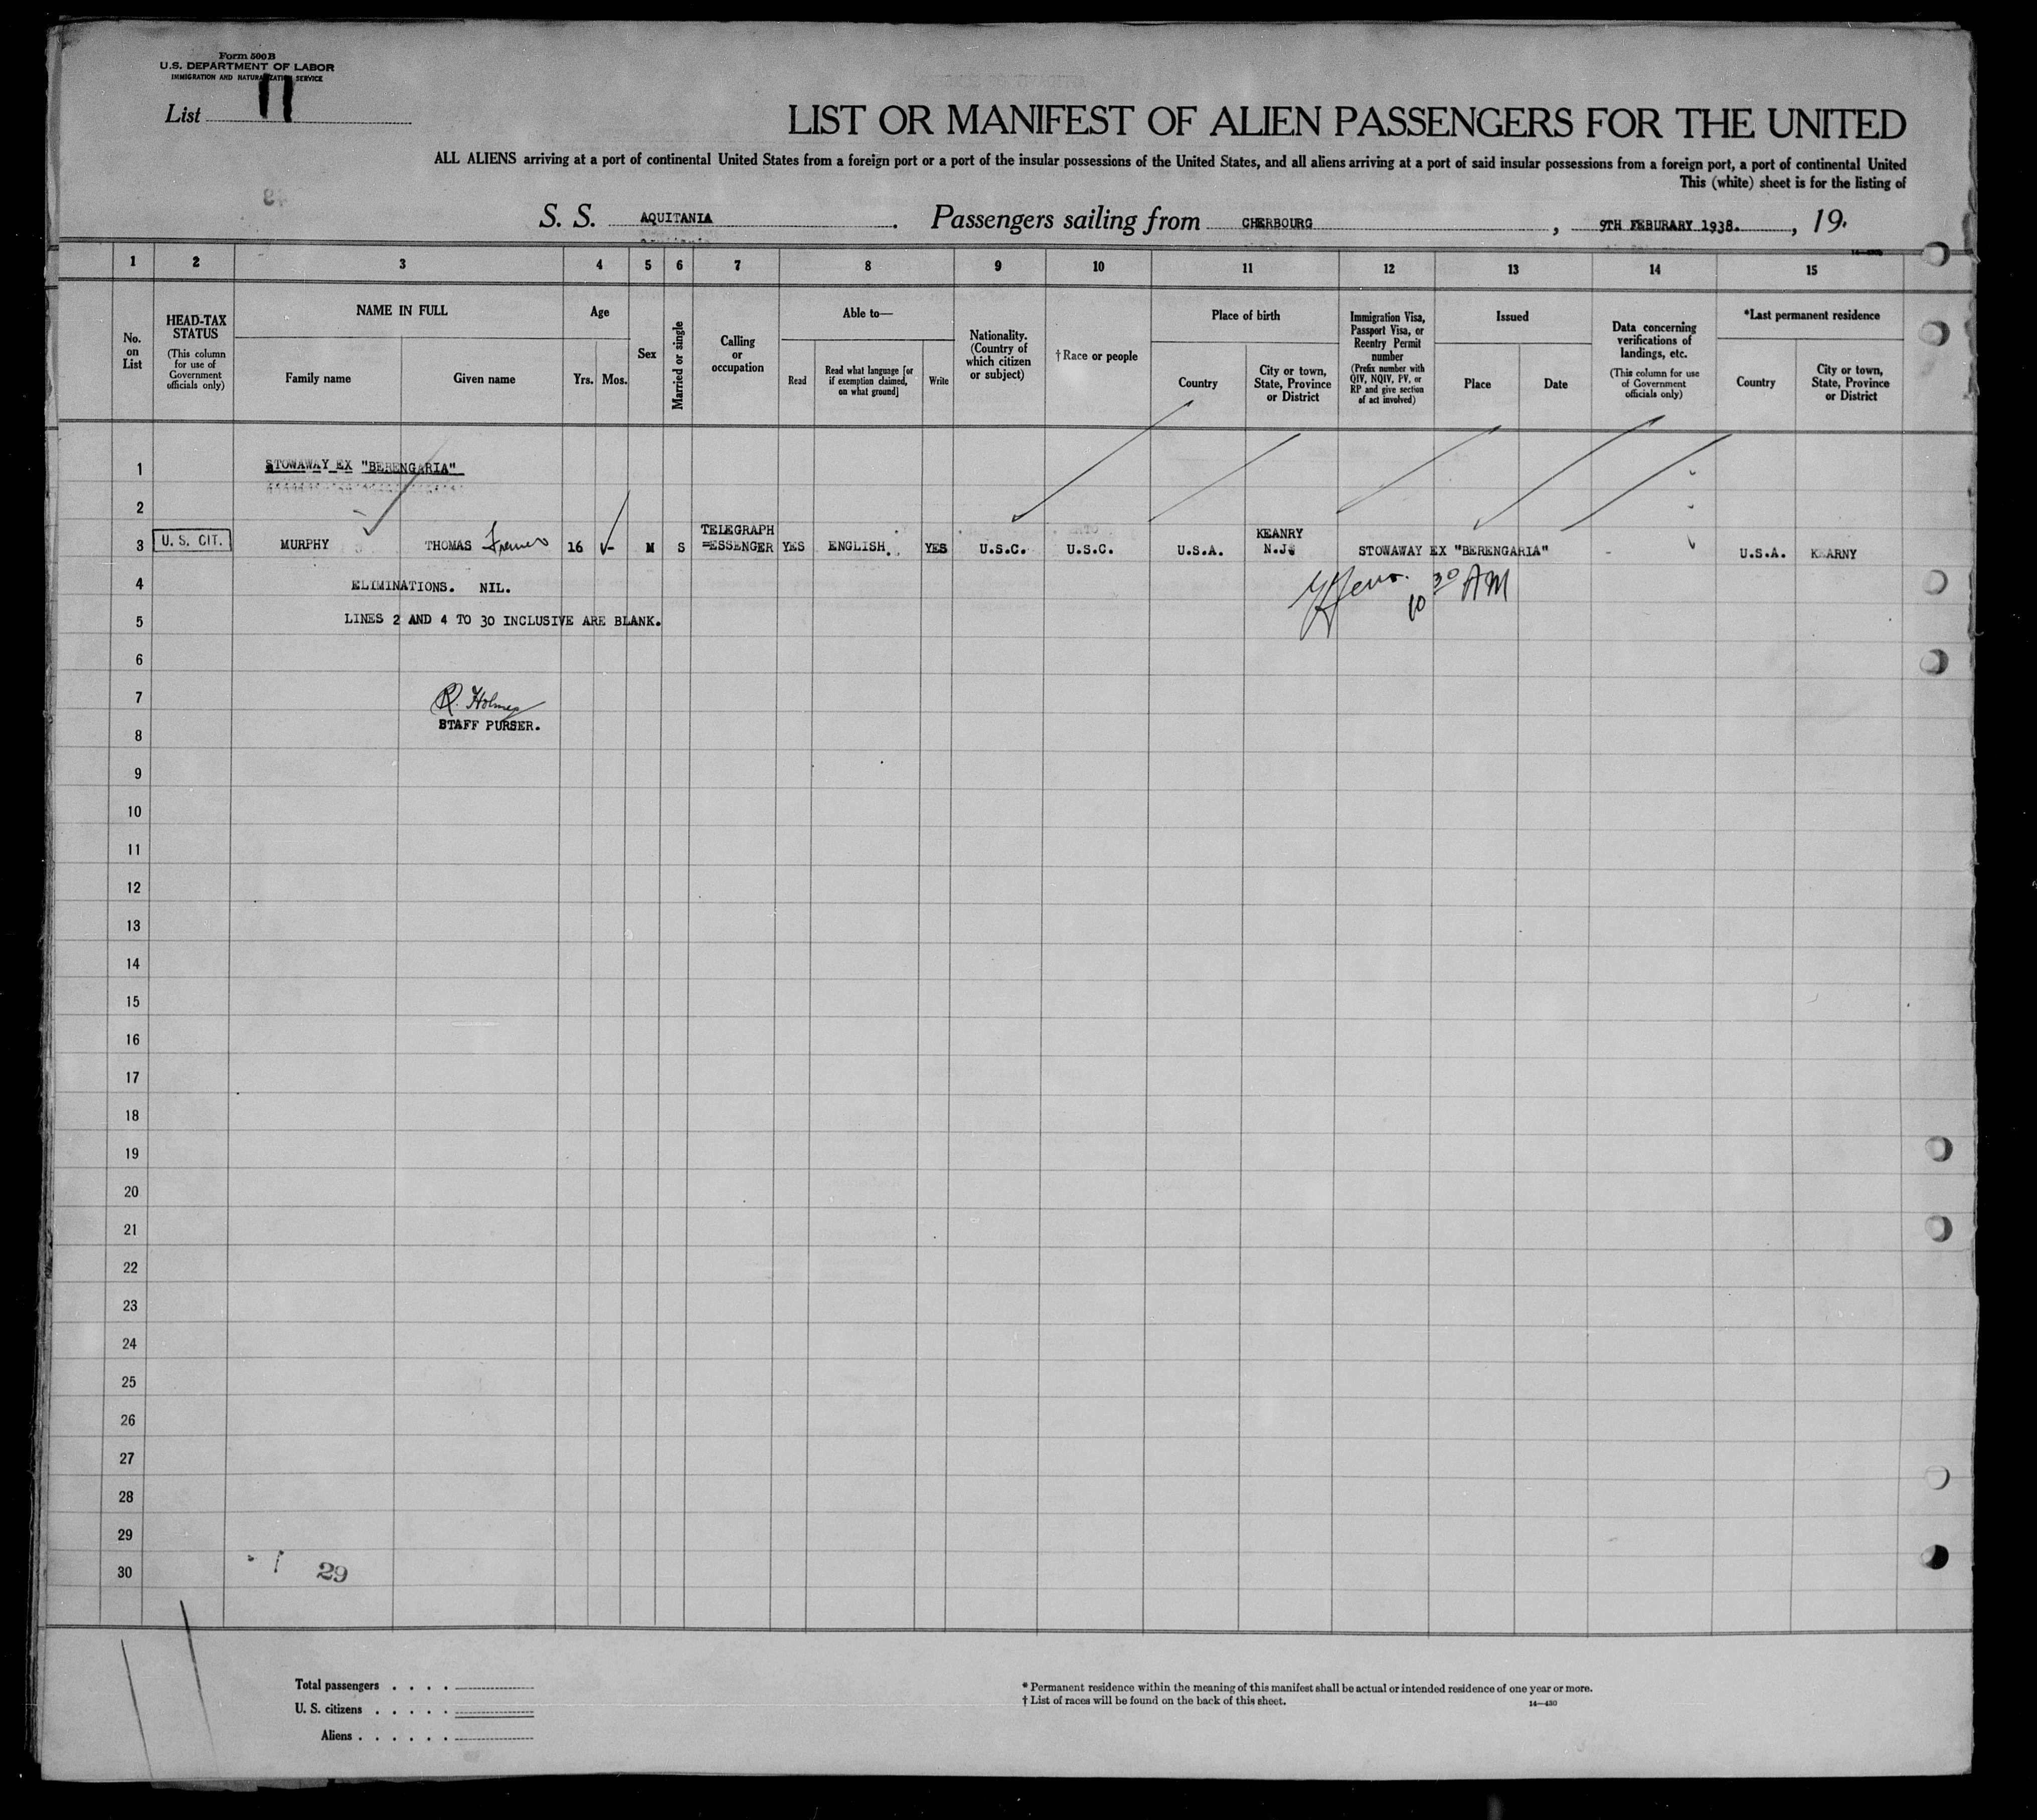 Form 500 B
U.S. DEPARTMENT OF LABOR
IMMIGRATION AND NATURALIZATION SERVICE
List 11
LIST OR MANIFEST OF ALIEN PASSENGERS FOR THE UNITED
ALL ALIENS arriving at a port of continental United States from a foreign port or a port of the insular possessions of the United States, and all aliens arriving at a port of said insular possessions from a foreign port, a port of continental United
This (white) sheet is for the listing of
S. S. AQUITANIA. Passengers sailing from CHERBOURG, 9TH FEBURARY 1938., 19
1 2 3 4 5 6 7 8 9 10 11 12 13 14 15
No. on List
HEAD-TAX STATUS
(This column for use of Government officials only)
NAME IN FULL
Family name
Given name
Age
Yrs.
Mos.
Sex
Married or single
Calling or occupation
Able to—
Read
Read what language [or if exemption claimed, on what ground]
Write
Nationality. (Country of which citizen or subject)
†Race or people
Place of birth
Country
City or town, State, Province or District
Immigration Visa, Passport Visa, or Reentry Permit number
(Prefix number with QIV, NQIV, PV, or RP and give section of act involved)
Issued
Place
Date
Data concerning verifications of landings, etc.
(This column for use of Government officials only)
*Last permanent residence
Country
City or town, State, Province or District
1 STOWAWAY EX "BERENGARIA"
2
3 U. S. CIT. MURPHY THOMAS 16 M S TELEGRAPH ESSENGER YES ENGLISH. YES U.S.C. U.S.C. U.S.A. KEANRY N.J. STOWAWAY EX "BERENGARIA" U.S.A. KEARNY
4 ELIMINATIONS. NIL. 10 30 AM
5 LINES 2 AND 4 TO 30 INCLUSIVE ARE BLANK.
6
7 R. Holmes
8 STAFF PURSER.
9
10
11
12
13
14
15
16
17
18
19
20
21
22
23
24
25
26
27
28
29
30 29
Total passengers . . . .
U. S. citizens . . . . .
Aliens . . . . . .
* Permanent residence within the meaning of this manifest shall be actual or intended residence of one year or more.
† List of races will be found on the back of this sheet.
14—430